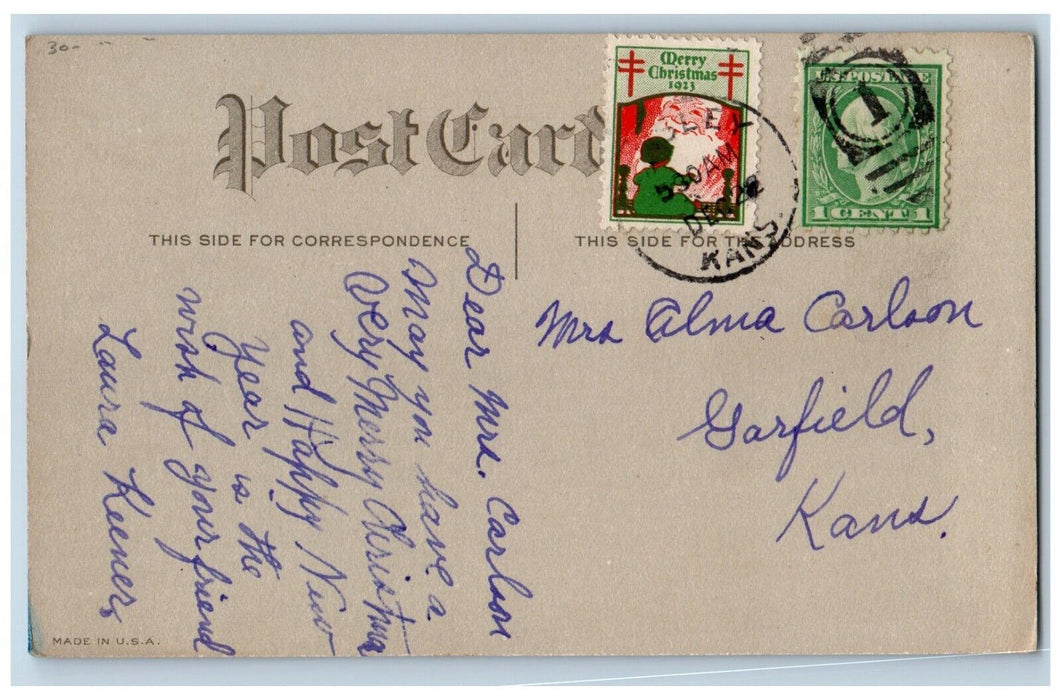 30-
Post Card
Merry
Christmas
1923
LEY
530 AM
DEC 22
KANS.
1
U.S. POSTAGE
1 CENT 1
THIS SIDE FOR CORRESPONDENCE
THIS SIDE FOR THE ADDRESS
Dear Mrs. Carlson
May you have a
Very Merry Christmas
and Happy New
Year is the
wish of your friend
Laura Keener,
Mrs Alma Carlson
Garfield,
Kans.
MADE IN U.S.A.